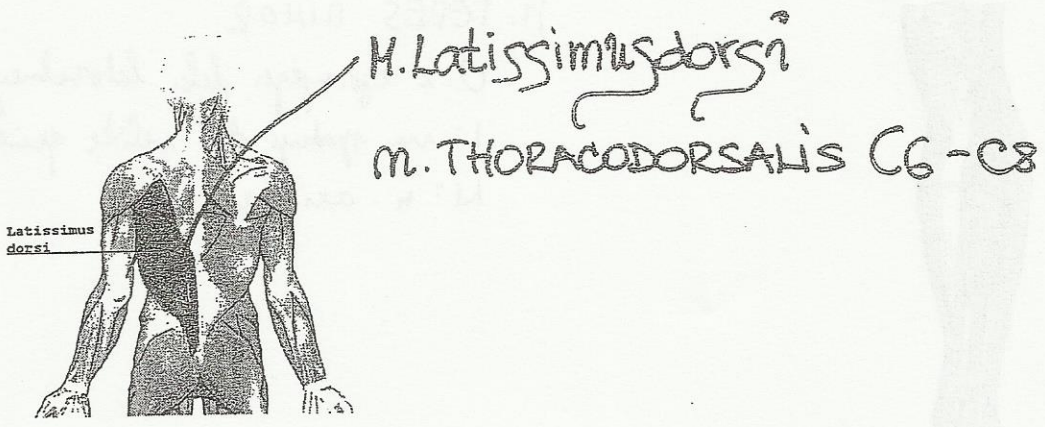 M. Latissimus dorsi
m. THORACODORSALIS C6-C8
Latissimus
dorsi